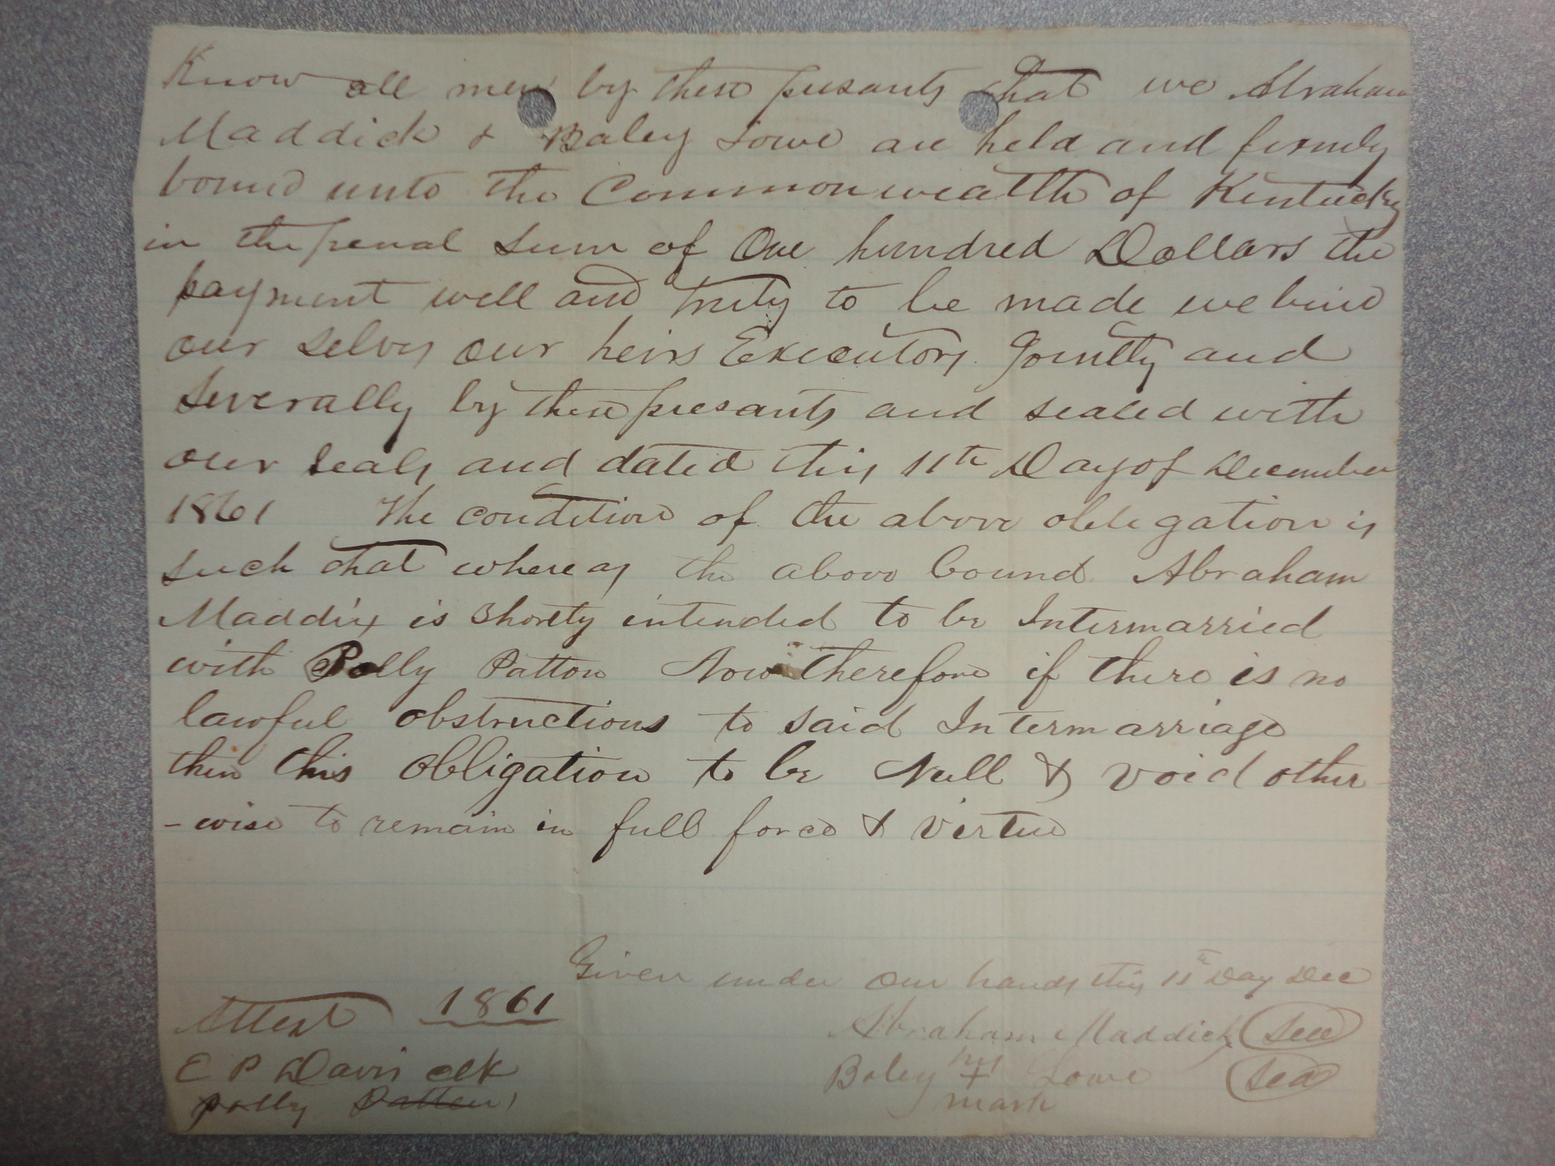 Know all men by these presants that we Abraham
Maddick & Baley Lowe are held and firmly
bound unto the Commonwealth of Kentucky
in the penal sum of One hundred Dollars the
payment well and truly to be made we bind
our selvs our heirs Executors Jointly and
severally by these presants and sealed with
our seals and dated this 11th Day of December
1861 The condition of the above oblegation is
such that whereas the above bound Abraham
Maddix is shortly intended to be Intermarried
with Polly Patton Now therefore if there is no
lawful obstructions to said Intermarriage
then this obligation to be Null & void other-
-wise to remain in full force & virtue
Given under our hands this 11th Day Dec
Attest 1861
Abraham Maddick Seal
E P Davis clk
Baley his + Lowe Seal
mark
Polly Patton